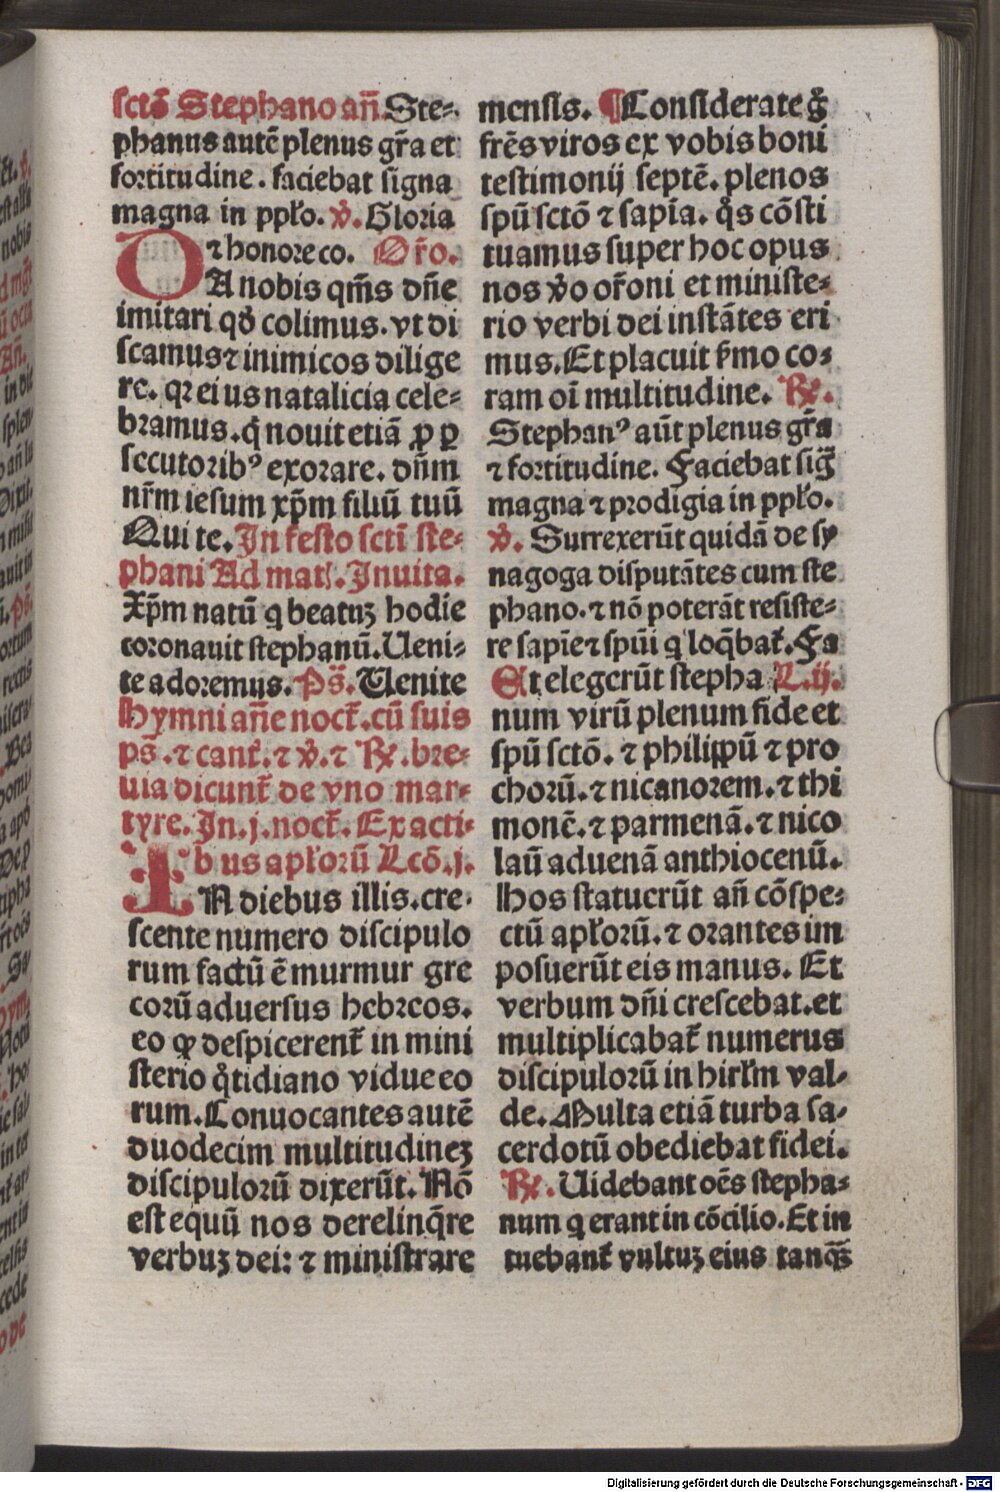 sctō Stephano an̄. Ste⸗
phanus autē plenus gr̄a et
fortitudine. faciebat signa
magna in ppl̄o. v̄. Gloria
⁊ honore co. Or̄o.
DA nobis qm̄s dn̄e
imitari qd̄ colimus. vt di
scamus ⁊ inimicos dilige
re. qꝛ eius natalicia cele⸗
bramus. q̄ nouit etiā ꝓ ꝑ
secutoribꝰ exorare. dn̄m
nr̄m iesum xp̄m filiū tuū
Qui te. In festo scti ste⸗
phani Ad mat̄. Inuita.
Xp̄m natū q beatuꝫ hodie
coronauit stephanū. Ueni⸗
te adoremus. Ps̄. Uenite
Hymni an̄e noct̄. cū suis
ps̄. ⁊ cant̄. ⁊ v̄. ⁊ ℞. bre⸗
uia dicunt̄ de vno mar⸗
tyre. In. j. noct̄. Ex acti⸗
bus apl̄orū Lcō. j.
IN diebus illis. cre⸗
scente numero discipulo
rum factū ē murmur gre
corū aduersus hebreos.
eo ꝙ despicerent̄ in mini
sterio q̄tidiano vidue eo
rum. Conuocantes autē
duodecim multitudineꝫ
discipulorū dixerūt. Nō
est equū nos derelinq̄re
verbuꝫ dei: ⁊ ministrare
mensis. ¶ Considerate g̊
frēs viros ex vobis boni
testimonij septē. plenos
spū sctō ⁊ sapīa. q̊s cōsti
tuamus super hoc opus
nos v̊o or̄oni et ministe⸗
rio verbi dei instātes eri
mus. Et placuit s̄mo co⸗
ram oī multitudine. ℞.
Stephanꝰ aūt plenus gr̄a
⁊ fortitudine. Faciebat siḡ
magna ⁊ prodigia in ppl̄o.
v̄. Surrexerūt quidā de sy
nagoga disputātes cum ste
phano. ⁊ nō poterāt resiste⸗
re sapīe ⁊ spūi q loq̄bat̄. Fa
Et elegerūt stepha L. ij.
num virū plenum fide et
spū sctō. ⁊ philippū ⁊ pro
chorū. ⁊ nicanorem. ⁊ thi
monē. ⁊ parmenā. ⁊ nico
laū aduenā anthiocenū.
Hos statuerūt an̄ cōspe⸗
ctū apl̄orū. ⁊ orantes im
posuerūt eis manus. Et
verbum dn̄i crescebat. et
multiplicabat̄ numerus
discipulorū in hirl̄m val⸗
de. Multa etiā turba sa⸗
cerdotū obediebat fidei.
℞. Uidebant oēs stepha⸗
num q erant in cōcilio. Et in
tuebant̄ vultuꝫ eius tanq̄ꝫ
Digitalisierung gefördert durch die Deutsche Forschungsgemeinschaft - DFG